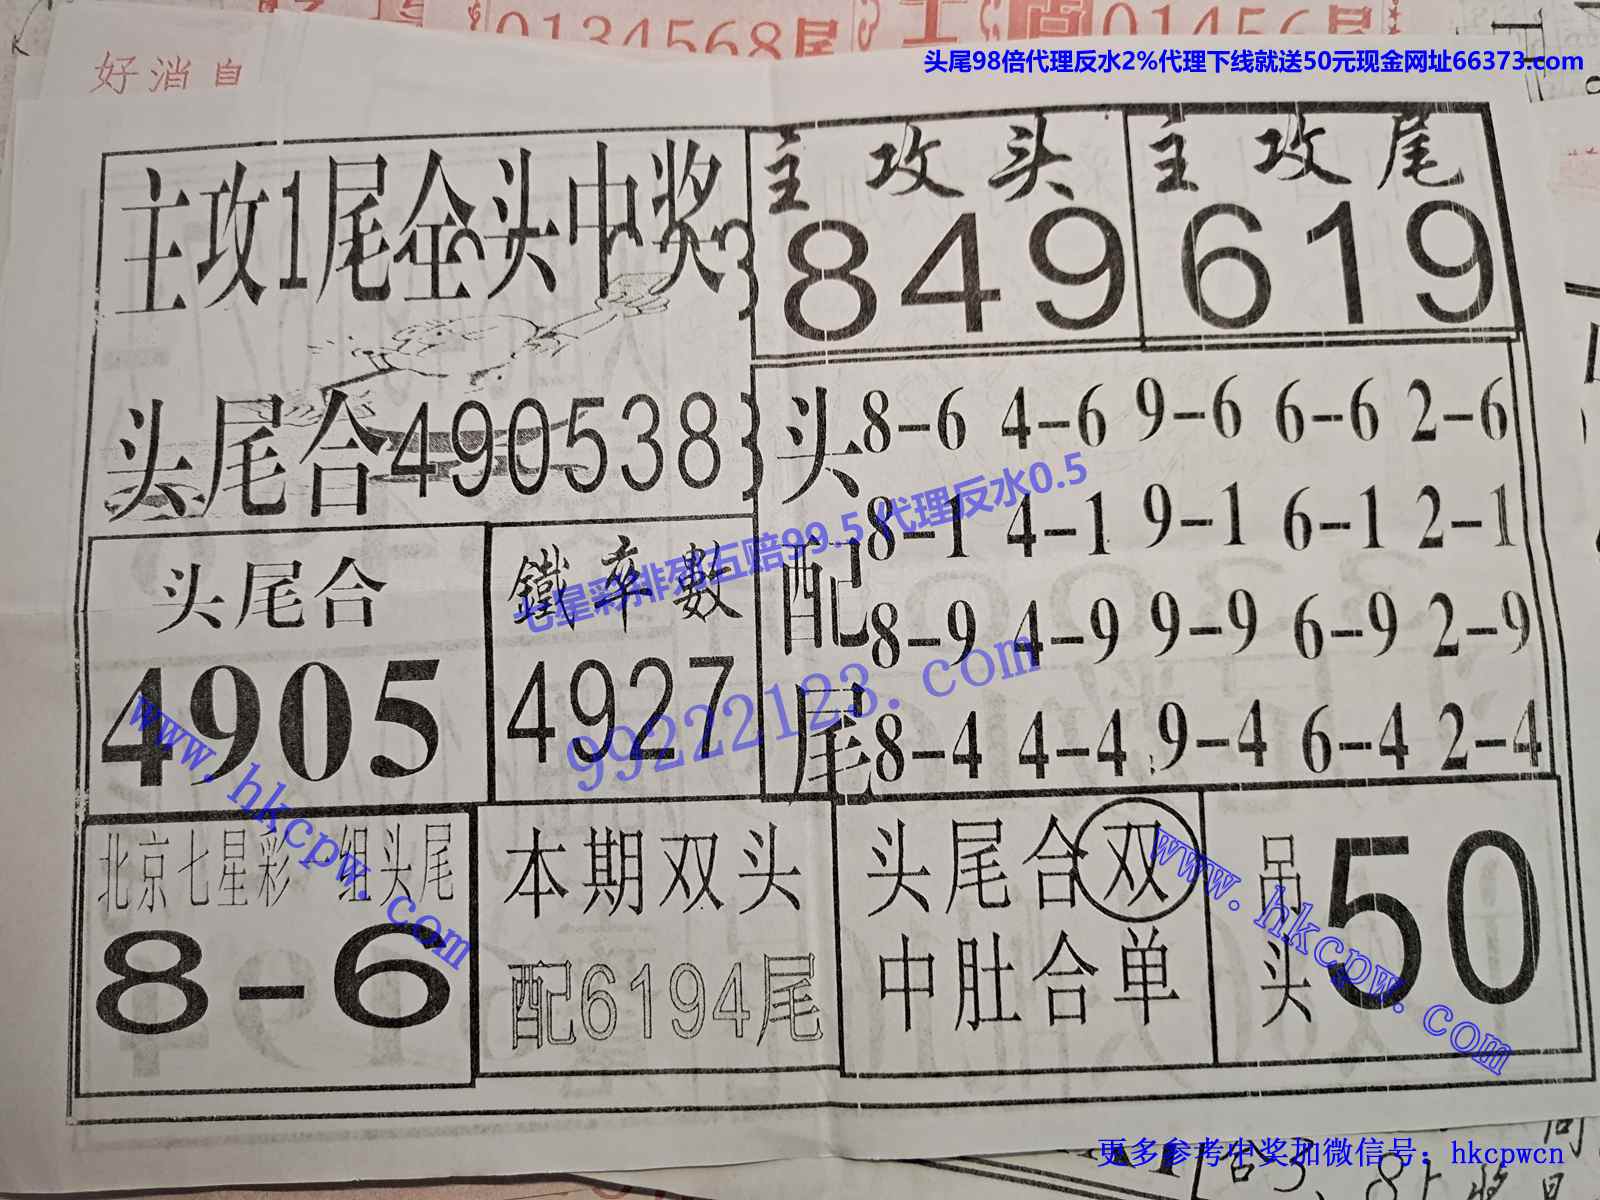 0134568尾
01456尾
头尾98倍代理反水2%代理下线就送50元现金网址66373.com
好消自
主攻1尾全头中奖
主攻头
849
主攻尾
619
头尾合490538
头配尾
8-6 4-6 9-6 6-6 2-6
8-1 4-1 9-1 6-1 2-1
8-9 4-9 9-9 6-9 2-9
8-4 4-4 9-4 6-4 2-4
头尾合
4905
鐵率數
4927
七星彩排列五赔99.5代理反水0.5
99222123.com
www.hkcpw.com
北京七星彩一组头尾
8-6
本期双头
配6194尾
头尾合双
中肚合单
吊头50
www.hkcpw.com
更多参考中奖加微信号：hkcpwcn